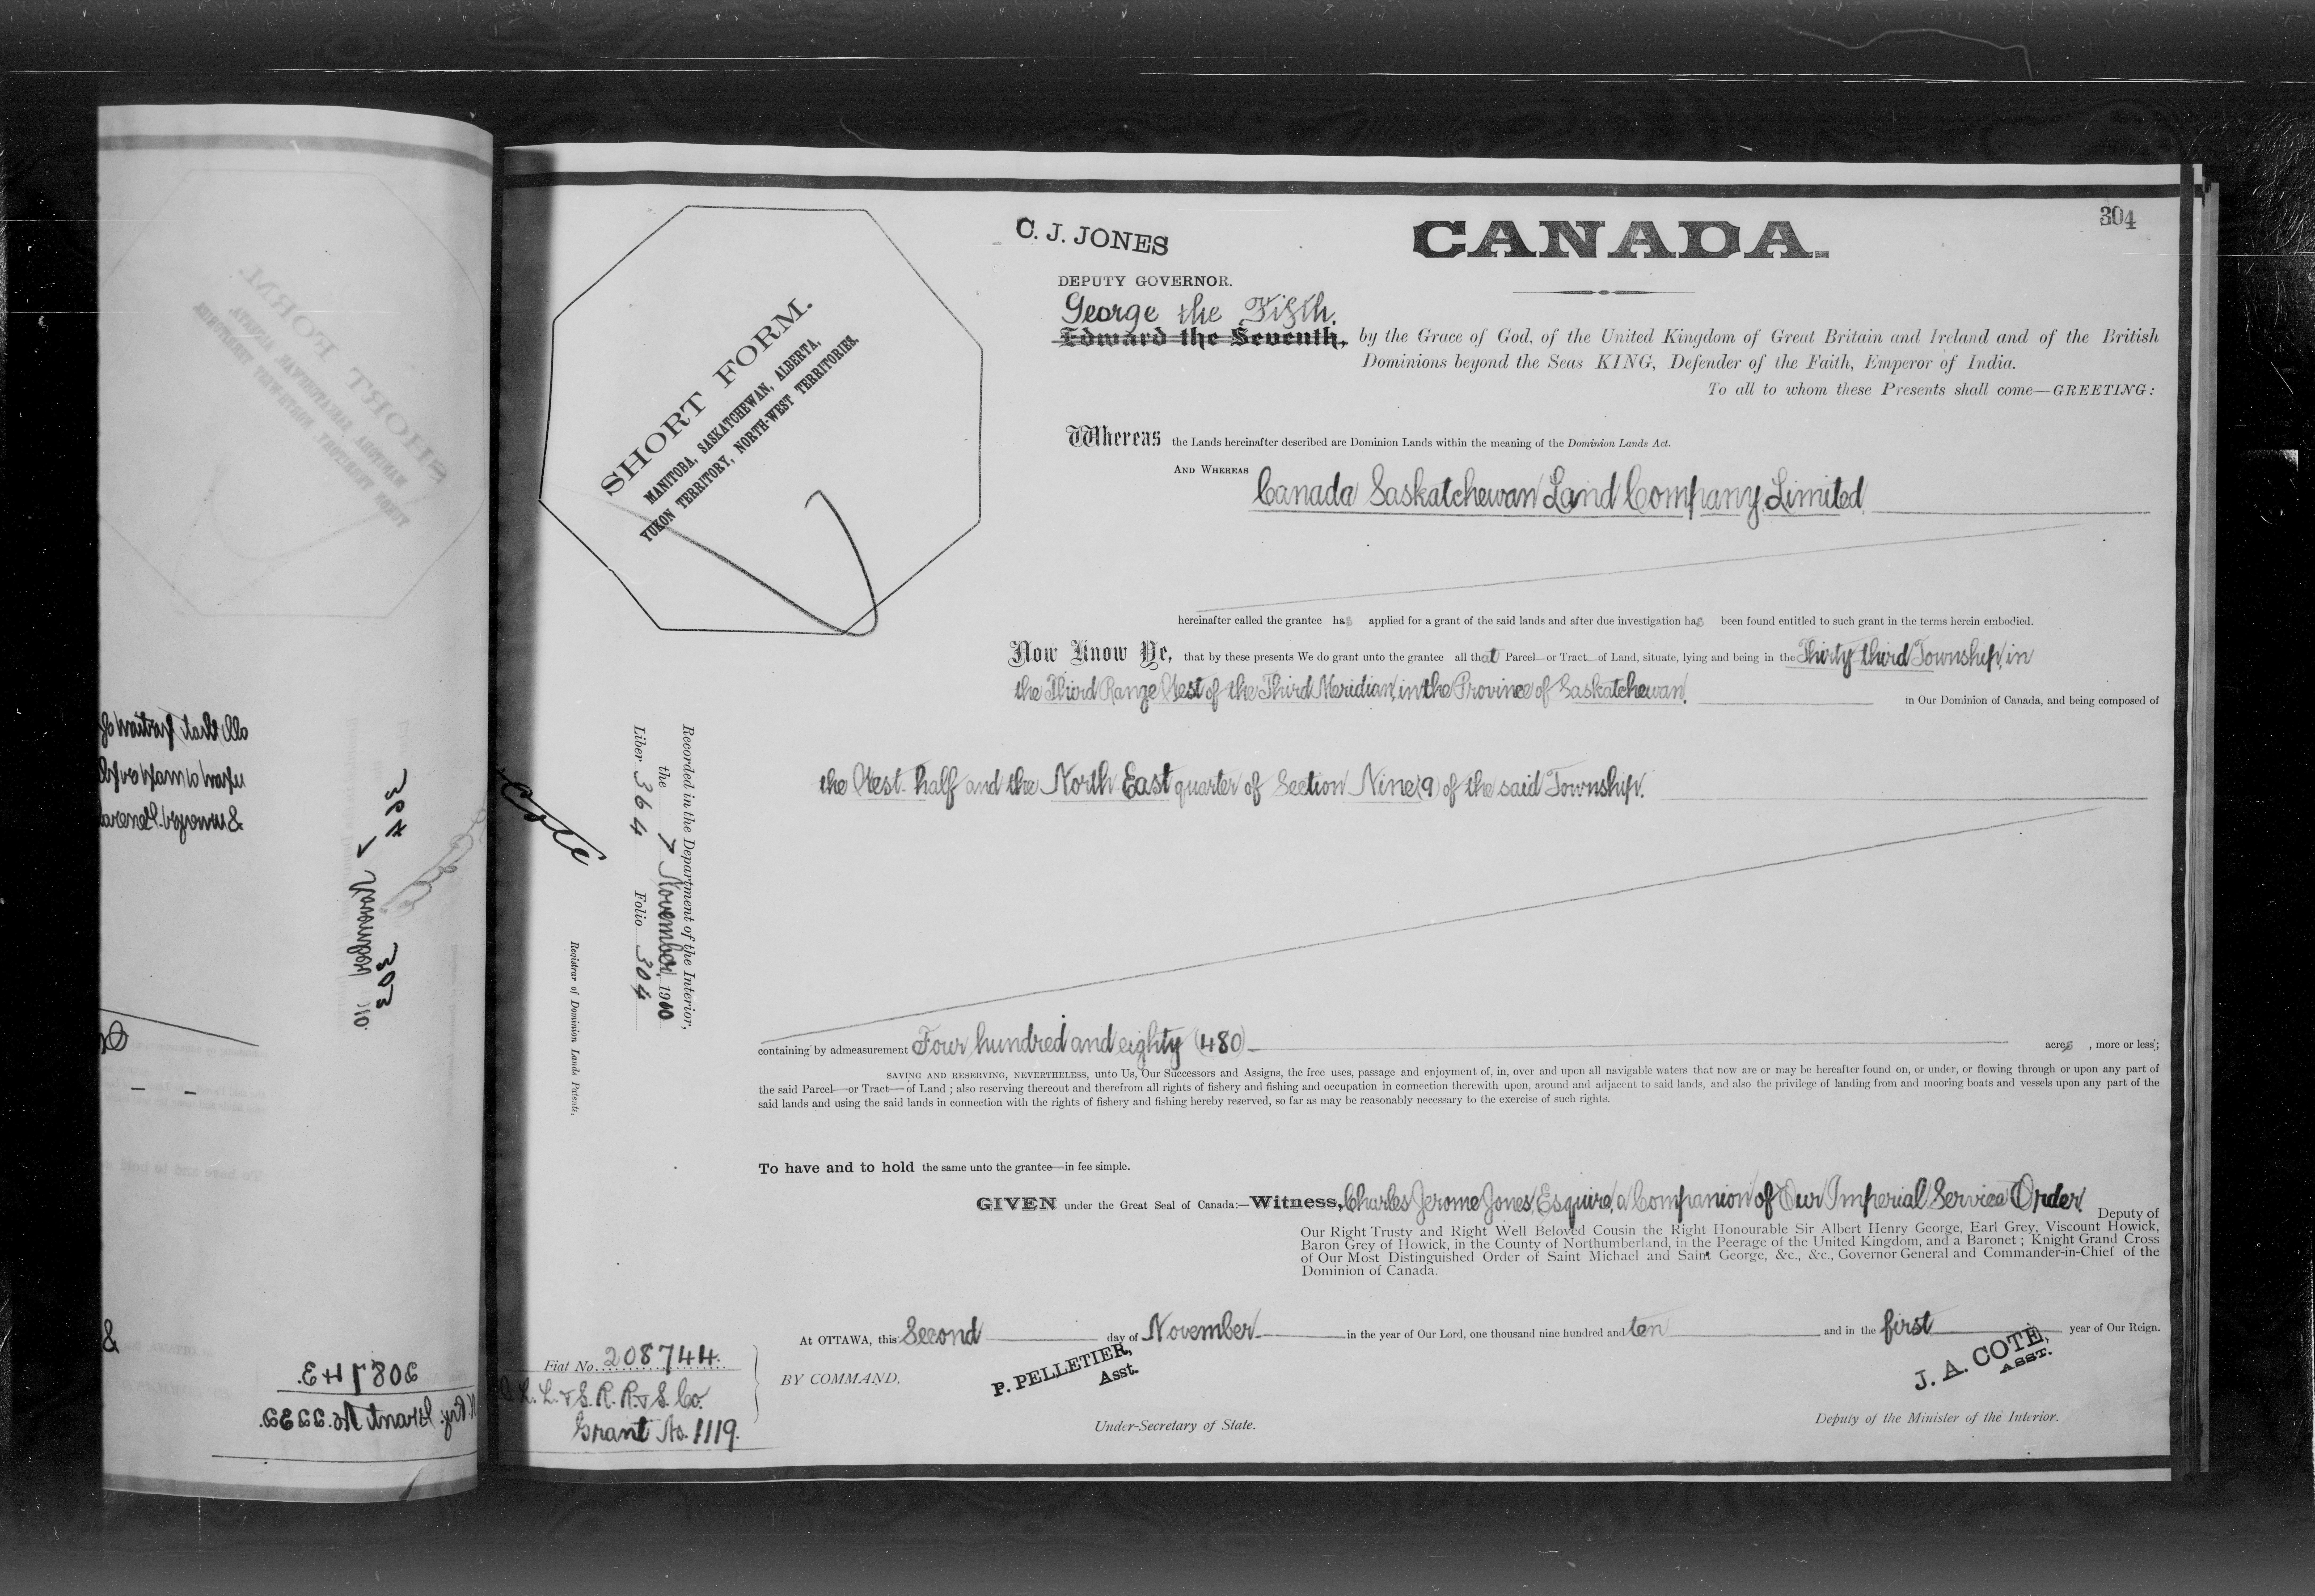 304
C. J. JONES
CANADA.
DEPUTY GOVERNOR.
George the Fifth.
Edward the Seventh, by the Grace of God, of the United Kingdom of Great Britain and Ireland and of the British
Dominions beyond the Seas KING, Defender of the Faith, Emperor of India.
To all to whom these Presents shall come—GREETING:
SHORT FORM.
MANITOBA, SASKATCHEWAN, ALBERTA,
YUKON TERRITORY, NORTH-WEST TERRITORIES.
Whereas the Lands hereinafter described are Dominion Lands within the meaning of the Dominion Lands Act.
AND WHEREAS Canada Saskatchewan Land Company, Limited
hereinafter called the grantee has applied for a grant of the said lands and after due investigation has been found entitled to such grant in the terms herein embodied.
Now Know Ye, that by these presents We do grant unto the grantee all that Parcel or Tract of Land, situate, lying and being in the Thirty third Township, in
the Third Range West of the Third Meridian, in the Province of Saskatchewan, in Our Dominion of Canada, and being composed of
the West half and the North East quarter of Section Nine (9) of the said Township.
Recorded in the Department of the Interior,
the 7 November, 1910
Liber 364 Folio 304
Registrar of Dominion Lands Patents.
containing by admeasurement Four hundred and eighty (480) acres, more or less;
SAVING AND RESERVING, NEVERTHELESS, unto Us, Our Successors and Assigns, the free uses, passage and enjoyment of, in, over and upon all navigable waters that now are or may be hereafter found on, or under, or flowing through or upon any part of
the said Parcel—or Tract—of Land; also reserving thereout and therefrom all rights of fishery and fishing and occupation in connection therewith upon, around and adjacent to said lands, and also the privilege of landing from and mooring boats and vessels upon any part of the
said lands and using the said lands in connection with the rights of fishery and fishing hereby reserved, so far as may be reasonably necessary to the exercise of such rights.
To have and to hold the same unto the grantee—in fee simple.
GIVEN under the Great Seal of Canada:—Witness, Charles Jerome Jones, Esquire, a Companion of Our Imperial Service Order. Deputy of
Our Right Trusty and Right Well Beloved Cousin the Right Honourable Sir Albert Henry George, Earl Grey, Viscount Howick,
Baron Grey of Howick, in the County of Northumberland, in the Peerage of the United Kingdom, and a Baronet; Knight Grand Cross
of Our Most Distinguished Order of Saint Michael and Saint George, &c., &c., Governor General and Commander-in-Chief of the
Dominion of Canada.
At OTTAWA, this Second day of November in the year of Our Lord, one thousand nine hundred and ten and in the first year of Our Reign.
Fiat No. 208744.
L. & S. R. R. & S. Co.
Grant No. 1119.
BY COMMAND,
P. PELLETIER,
Asst.
Under-Secretary of State.
J. A. COTÉ,
ASST.
Deputy of the Minister of the Interior.